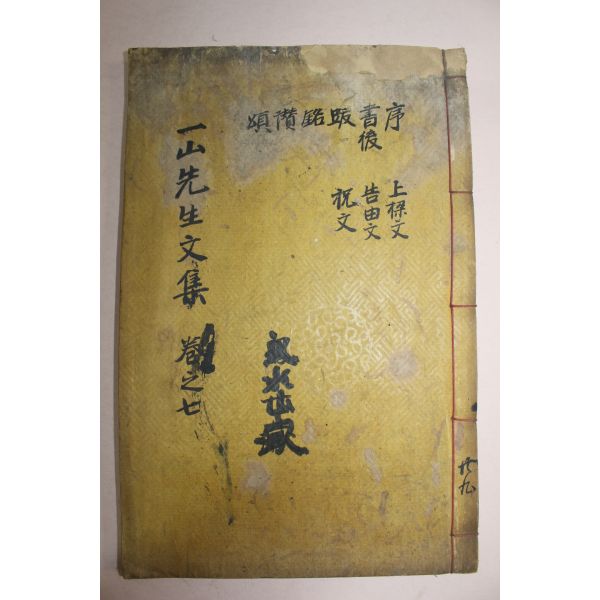 序 上樑文
書後 告由文
跋 祝文
銘
讚
頌
一山先生文集 卷之七
共九